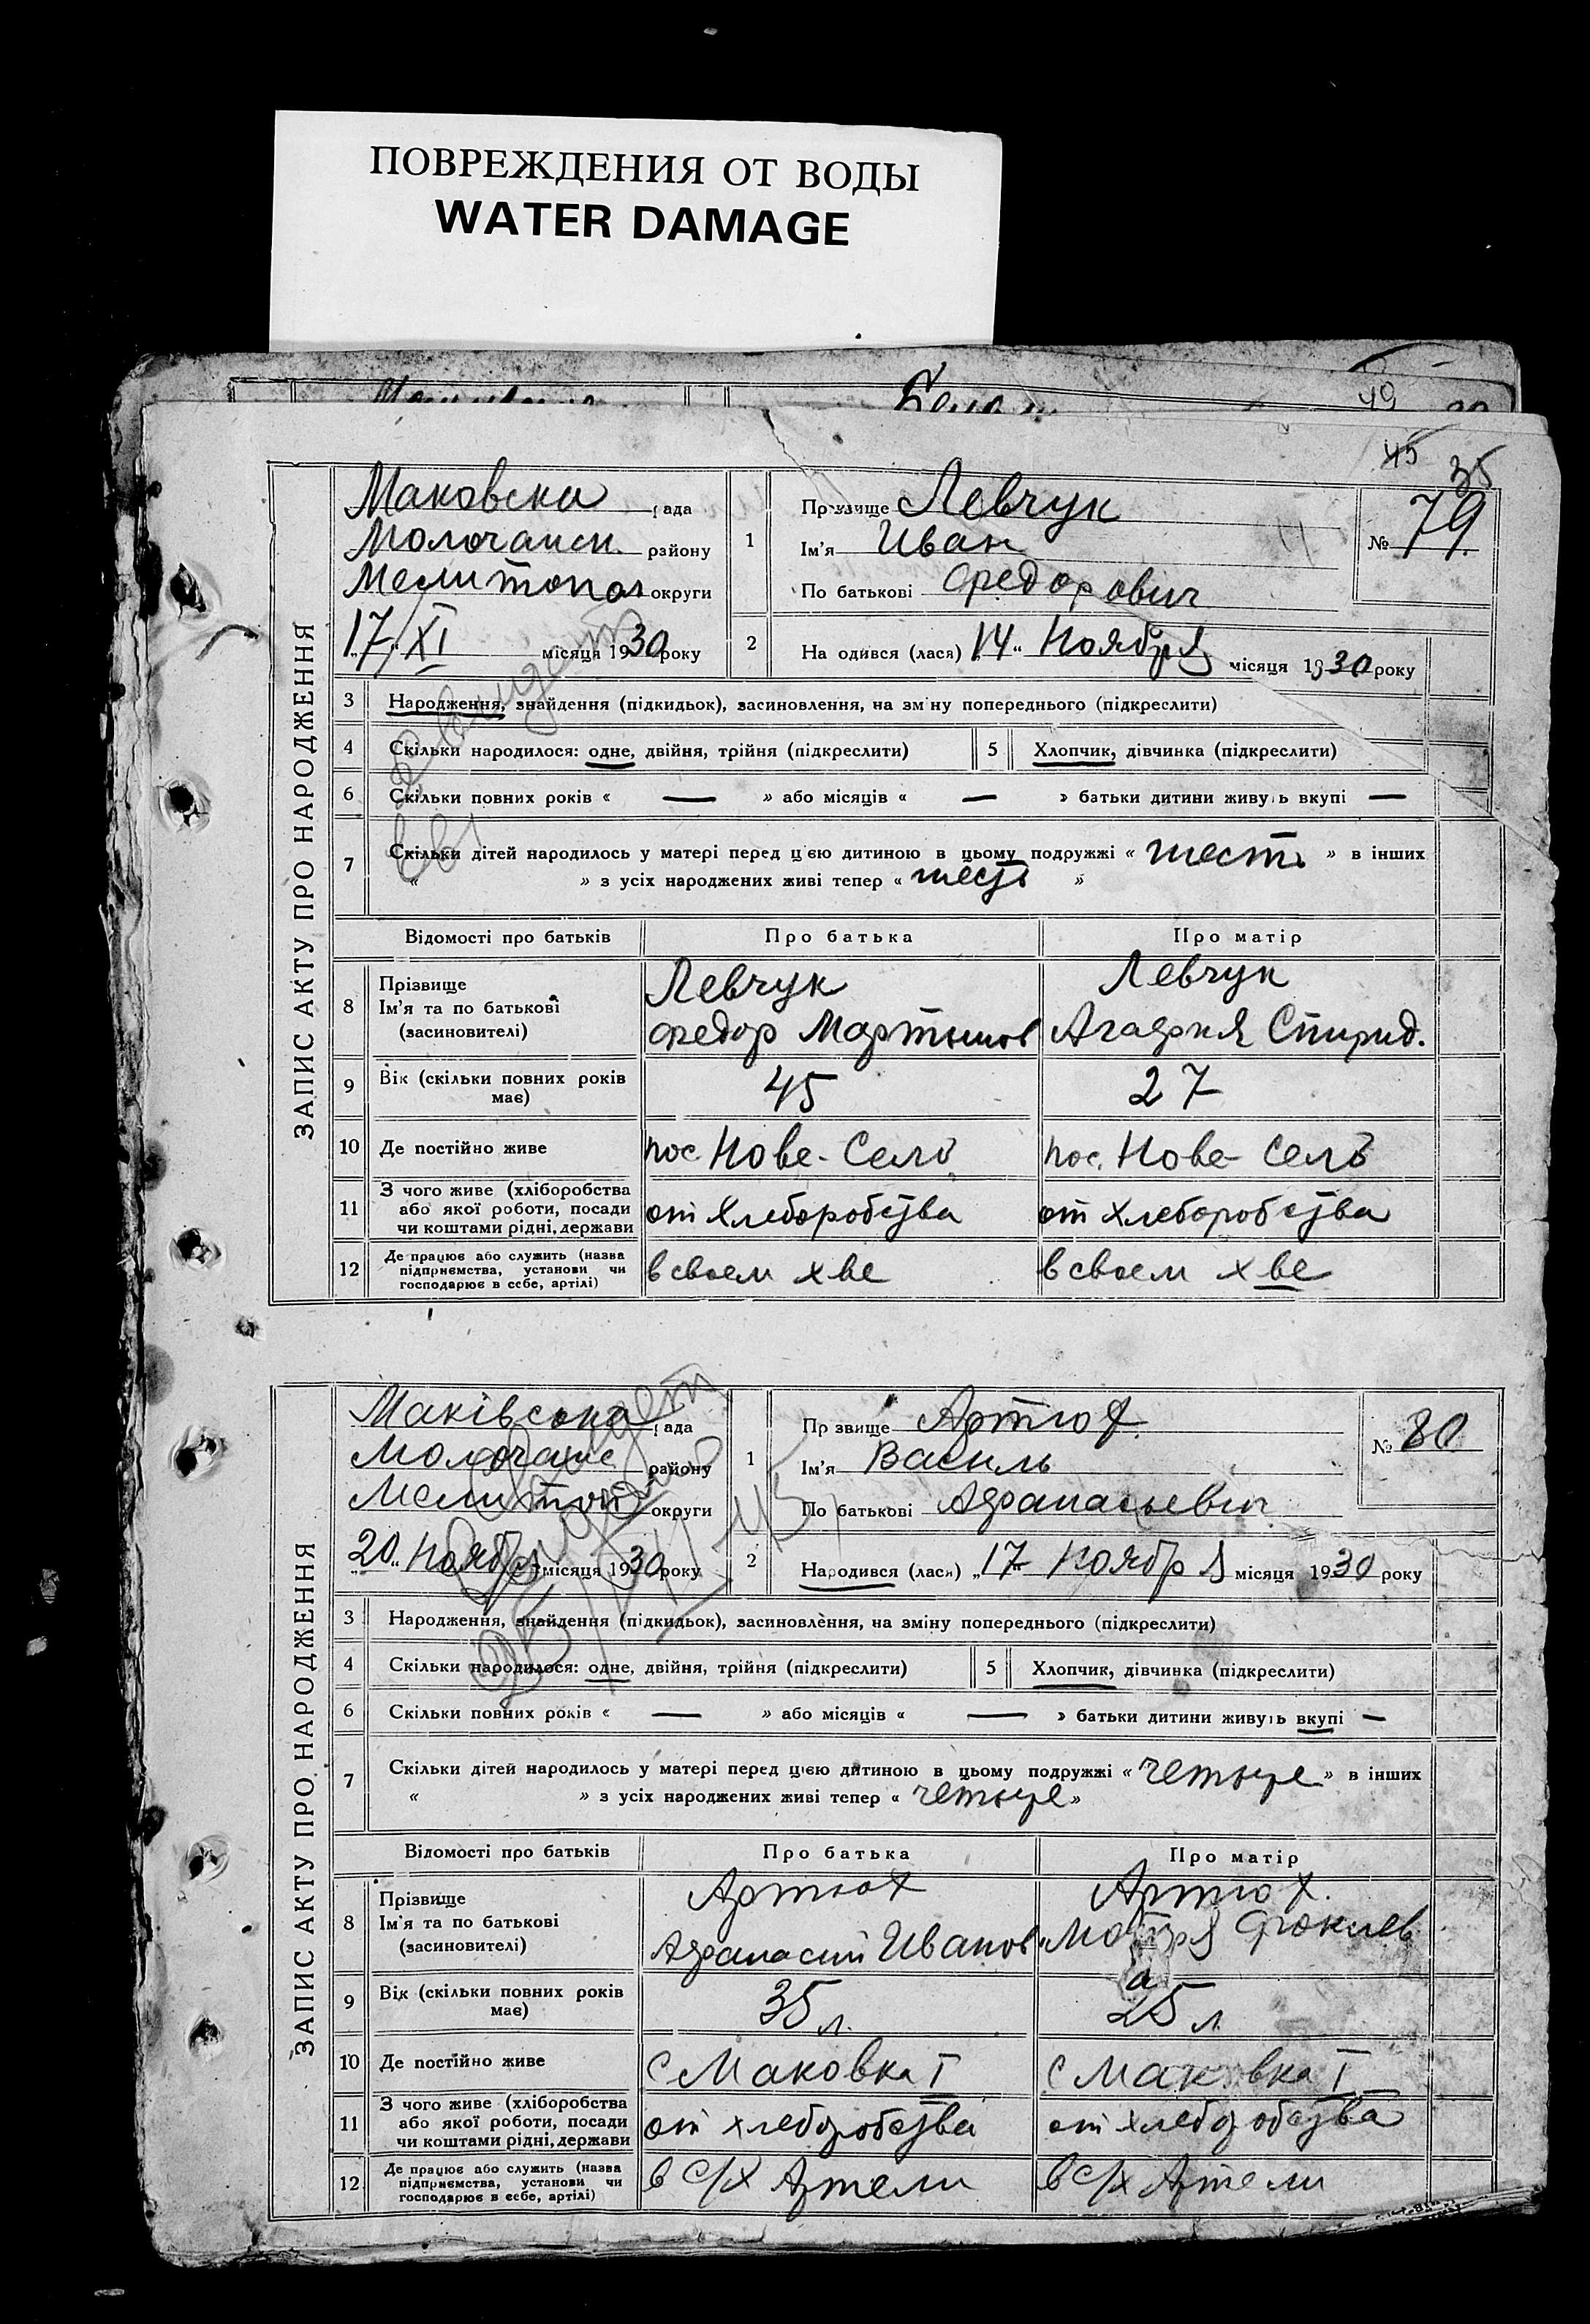 ПОВРЕЖДЕНИЯ ОТ ВОДЫ
WATER DAMAGE
49
45
35
ЗАПИС АКТУ ПРО НАРОДЖЕННЯ
Маковска рада
Молочанск. району
Мелитопол округи
„17„ XI місяця 1930 року
1
Прізвище Левчук
Ім'я Иван
По батькові Федорович
№ 79.
2
Народився (лася) „14„ Ноября місяця 1930 року
3 Народження, знайдення (підкидьок), засиновлення, на зміну попереднього (підкреслити)
4 Скільки народилося: одне, двійня, трійня (підкреслити) 5 Хлопчик, дівчинка (підкреслити)
6 Скільки повних років « — » або місяців « — » батьки дитини живуть вкупі —
7 Скільки дітей народилось у матері перед цією дитиною в цьому подружжі « шесть » в інших
« » з усіх народжених живі тепер « шесть »
Відомості про батьків Про батька Про матір
8 Прізвище Левчук Левчук
Ім'я та по батькові (засиновителі) Федор Мартынов Агафия Спирид.
9 Вік (скільки повних років має) 45 27
10 Де постійно живе пос. Нове-Село пос. Нове-Село
11 З чого живе (хліборобства або якої роботи, посади чи коштами рідні, держави от хлеборобства от хлеборобства
12 Де працює або служить (назва підприємства, установи чи господарює в себе, артілі) в своем хве в своем хве
ЗАПИС АКТУ ПРО НАРОДЖЕННЯ
Маківська рада
Молочанс району
Мелитоп округи
„20„ Ноября місяця 1930 року
1
Прізвище Артюх
Ім'я Василь
По батькові Афанасьевич
№ 80
2
Народився (лася) „17„ Ноября місяця 1930 року
3 Народження, знайдення (підкидьок), засиновлення, на зміну попереднього (підкреслити)
4 Скільки народилося: одне, двійня, трійня (підкреслити) 5 Хлопчик, дівчинка (підкреслити)
6 Скільки повних років « — » або місяців « — » батьки дитини живуть вкупі —
7 Скільки дітей народилось у матері перед цією дитиною в цьому подружжі « четыре » в інших
« » з усіх народжених живі тепер « четыре »
Відомості про батьків Про батька Про матір
8 Прізвище Артюх Артюх.
Ім'я та по батькові (засиновителі) Афанасий Иванов
9 Вік (скільки повних років має) 35 л. 25 л
10 Де постійно живе с Маковка I с Маковка I
11 З чого живе (хліборобства або якої роботи, посади чи коштами рідні, держави от хлеборобства от хлеборобства
12 Де працює або служить (назва підприємства, установи чи господарює в себе, артілі) в с/х Артели в с/х Артели